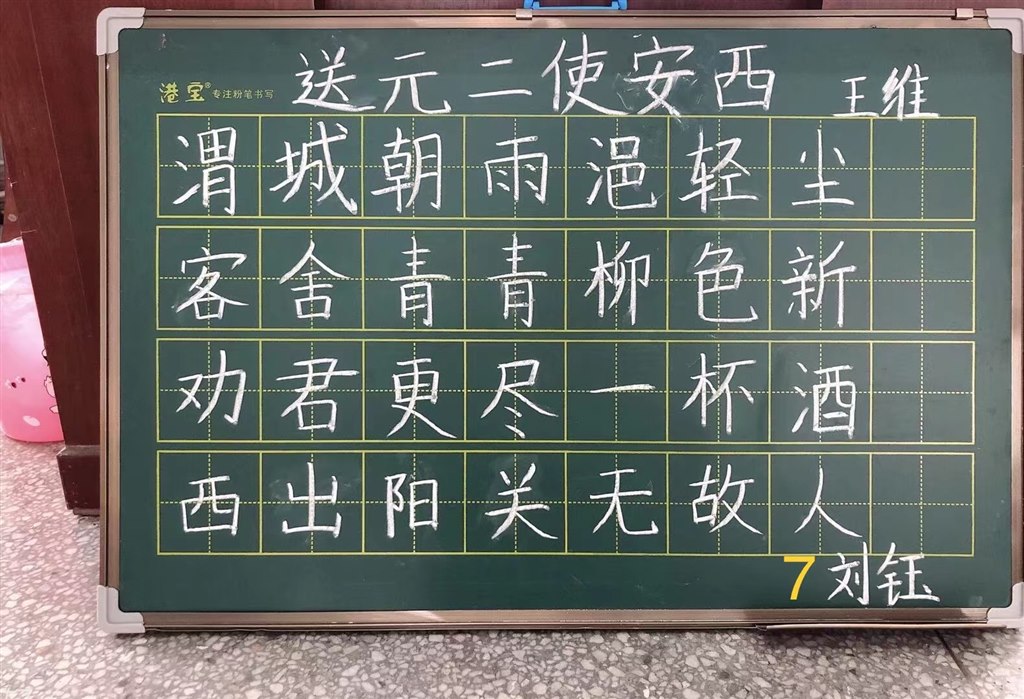 送元二使安西 王维
港宝® 专注粉笔书写
渭城朝雨浥轻尘
客舍青青柳色新
劝君更尽一杯酒
西出阳关无故人
7 刘钰